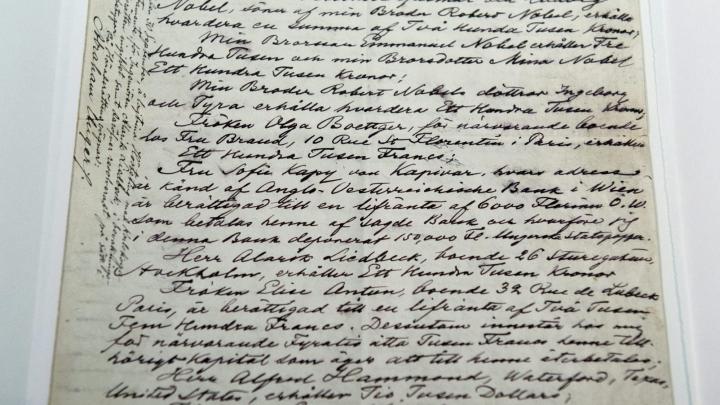 Nobel, söner af min Broder Robert Nobel, erhålla
hvardera en summa af Två Hundra Tusen Kronor;
Min Brorson Emmanuel Nobel erhåller Tre
Hundra Tusen och min Brorsdotter Mina Nobel
Ett Hundra Tusen Kronor;
Min Broder Robert Nobels döttrar Ingeborg
och Tyra erhålla hvardera Ett Hundra Tusen Kronor;
Fröken Olga Boettger, för närvarande boende
hos Fru Brand, 10 Rue St Florentin i Paris, erhåller
Ett Hundra Tusen Francs;
Fru Sofie Kapy von Kapivar, hvars adress
är känd af Anglo-Oesterreichische Bank i Wien
är berättigad till en lifränta af 6000 Florins Ö.W.
som betalas henne af sagde Bank och hvarför jag
i denna Bank deponerat 150,000 Fl. i Ungerska statspapper.
Herr Alarik Liedbeck, boende 26 Sturegatan,
Stockholm, erhåller Ett Hundra Tusen Kronor
Fröken Elise Antun, boende 32 Rue de Lubeck
Paris, är berättigad till en lifränta af Två Tusen
Fem Hundra Francs. Desutom innestår hos mig
för närvarande Fyratio åtta Tusen Francs henne till-
hörigt Kapital som äger att till henne återbetalas;
Herr Alfred Hammond, Waterford, Texas,
United States, erhåller Tio Tusen Dollars;